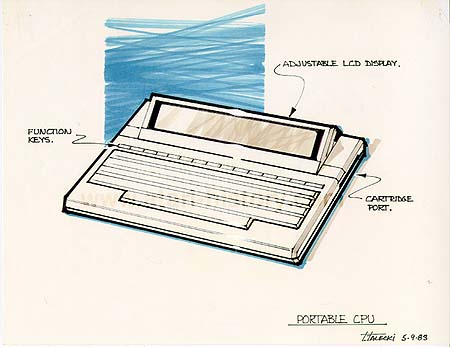 ADJUSTABLE LCD DISPLAY.
FUNCTION
KEYS.
CARTRIDGE
PORT.
PORTABLE CPU
5·9·83